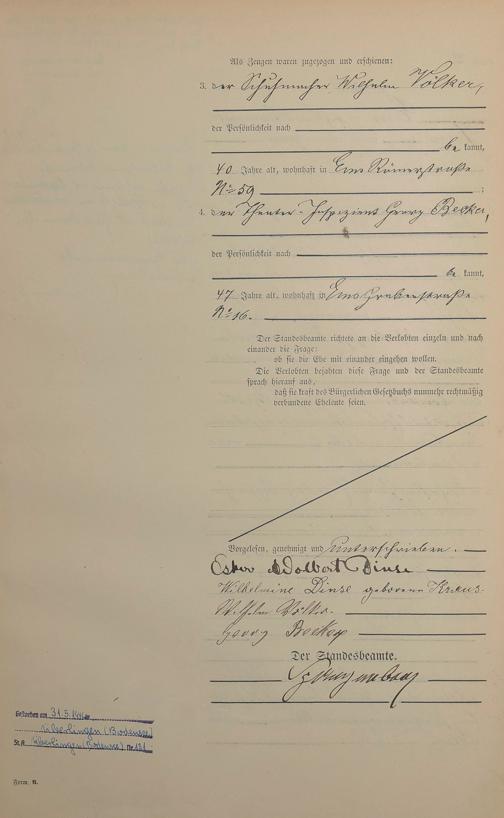 Als Zeugen waren zugezogen und erschienen:
3. der Schuhmacher Wilhelm Völker,
der Persönlichkeit nach
be kannt,
40 Jahre alt, wohnhaft in Ems Römerstraße
No 59 ;
4. der Theater-Inspizient Georg Becker,
der Persönlichkeit nach
be kannt,
47 Jahre alt, wohnhaft in Ems Grabenstraße
No 16.
Der Standesbeamte richtete an die Verlobten einzeln und nach
einander die Frage:
ob sie die Ehe mit einander eingehen wollen.
Die Verlobten bejahten diese Frage und der Standesbeamte
sprach hierauf aus,
daß sie kraft des Bürgerlichen Gesetzbuchs nunmehr rechtmäßig
verbundene Eheleute seien.
Vorgelesen, genehmigt und unterschrieben.
Adalbert Dinse
Wilhelmine Dinse geborene Kraus.
Wilhelm Völker.
Georg Becker
Der Standesbeamte.
Gestorben am 31.5.
Überlingen (Bodensee)
St.A. Überlingen (Bodensee) Nr. 131
Form. B.